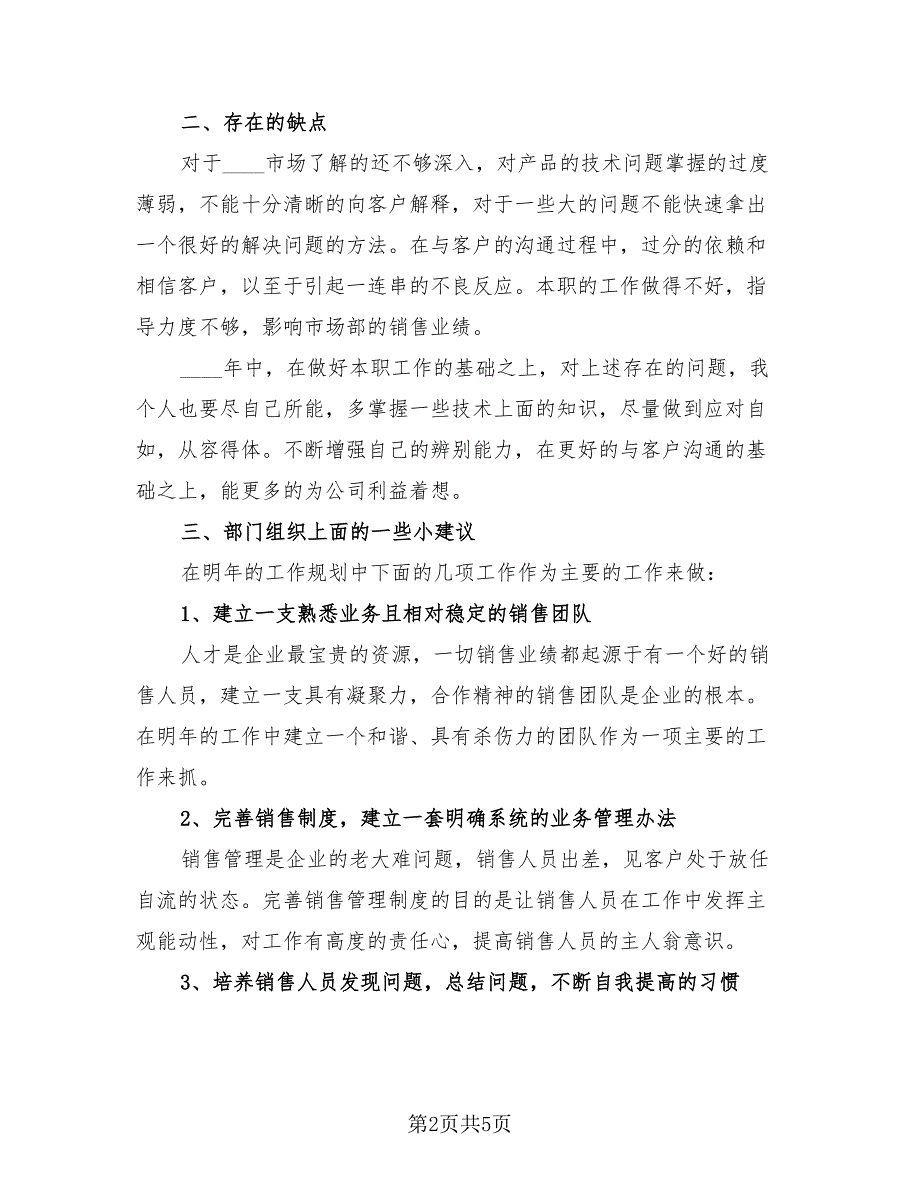 二、存在的缺点
对于____市场了解的还不够深入，对产品的技术问题掌握的过度
薄弱，不能十分清晰的向客户解释，对于一些大的问题不能快速拿出
一个很好的解决问题的方法。在与客户的沟通过程中，过分的依赖和
相信客户，以至于引起一连串的不良反应。本职的工作做得不好，指
导力度不够，影响市场部的销售业绩。
____年中，在做好本职工作的基础之上，对上述存在的问题，我
个人也要尽自己所能，多掌握一些技术上面的知识，尽量做到应对自
如，从容得体。不断增强自己的辨别能力，在更好的与客户沟通的基
础之上，能更多的为公司利益着想。
三、部门组织上面的一些小建议
在明年的工作规划中下面的几项工作作为主要的工作来做：
1、建立一支熟悉业务且相对稳定的销售团队
人才是企业最宝贵的资源，一切销售业绩都起源于有一个好的销
售人员，建立一支具有凝聚力，合作精神的销售团队是企业的根本。
在明年的工作中建立一个和谐、具有杀伤力的团队作为一项主要的工
作来抓。
2、完善销售制度，建立一套明确系统的业务管理办法
销售管理是企业的老大难问题，销售人员出差，见客户处于放任
自流的状态。完善销售管理制度的目的是让销售人员在工作中发挥主
观能动性，对工作有高度的责任心，提高销售人员的主人翁意识。
3、培养销售人员发现问题，总结问题，不断自我提高的习惯
第2页共5页